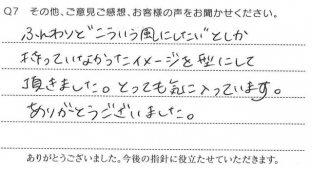 Q7 その他、ご意見ご感想、お客様の声をお聞かせください。
ふんわりと"こういう風にしたい"としか
持っていなかったイメージを型にして
頂きました。とっても気に入っています。
ありがとうございました。
ありがとうございました。今後の指針に役立たせていただきます。